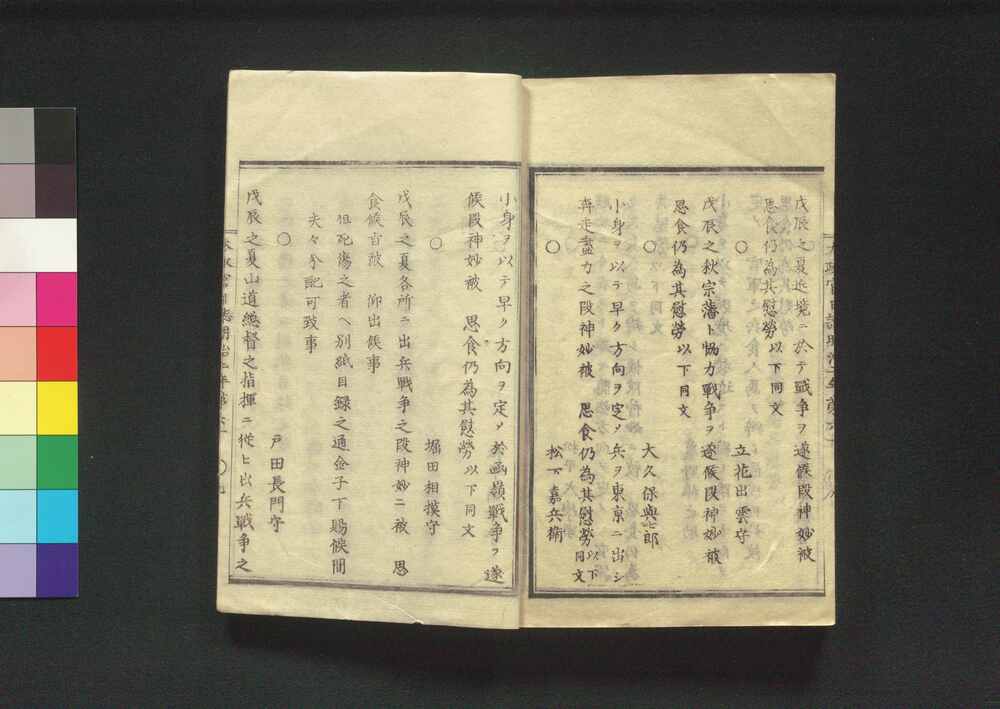 戊辰之夏近境ニ於テ戰爭ヲ遂候段神妙被
思食仍為其慰勞以下同文
○
立花出雲守
戊辰之秋宗藩ト協力戰爭ヲ遂候段神妙被
思食仍為其慰勞以下同文
○
大久保與七郎
小身ヲ以テ早ク方向ヲ定メ兵ヲ東京ニ出シ
奔走盡力之段神妙被 思食仍為其慰勞以下同文
○
松下嘉兵衛
小身ヲ以テ早ク方向ヲ定メ於函嶺戰爭ヲ遂
候段神妙被 思食仍為其慰勞以下同文
○
堀田相摸守
戊辰之夏各所ニ出兵戰爭之段神妙ニ被 思
食候旨被 仰出候事
但死傷之者ヘ別紙目録之通金子下賜候間
夫々分配可致事
○
戸田長門守
戊辰之夏山道總督之指揮ニ從ヒ出兵戰爭之